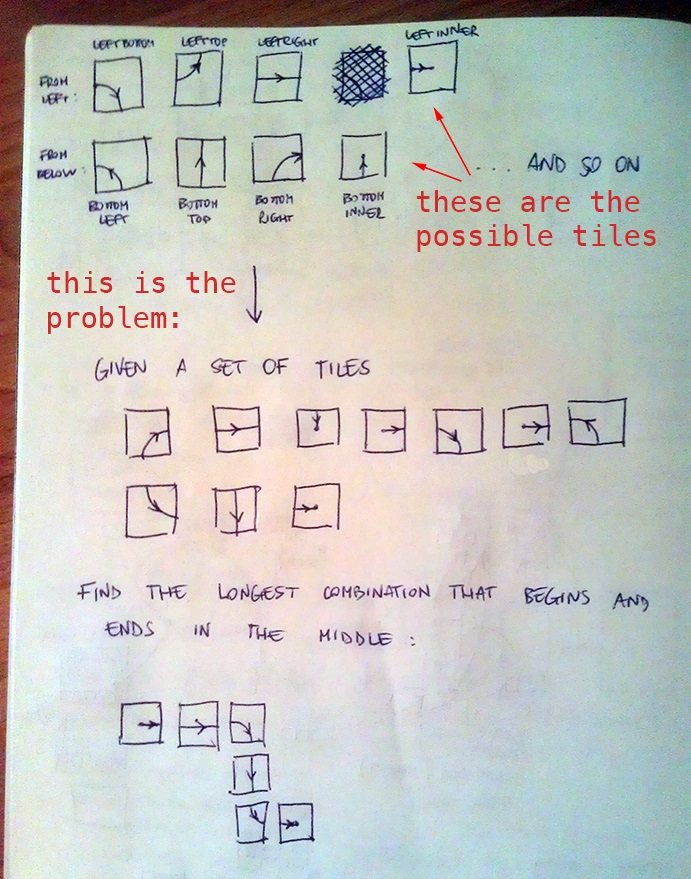 LEFTBOTTOM LEFTTOP LEFTRIGHT LEFTINNER
FROM
LEFT:
FROM
BELOW:
.... AND SO ON
BOTTOM
LEFT
BOTTOM
TOP
BOTTOM
RIGHT
BOTTOM
INNER
these are the
possible tiles
this is the
problem:
GIVEN A SET OF TILES
FIND THE LONGEST COMBINATION THAT BEGINS AND
ENDS IN THE MIDDLE: